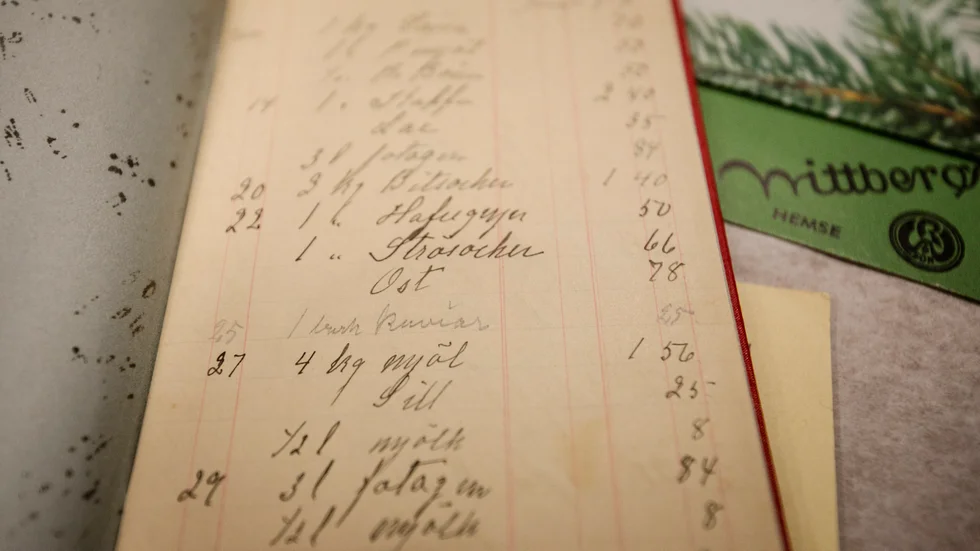 1 kg
14 1 " Kaffe 2 40
35
3 l fotogen 84
20 3 kg Bitsocker 1 40
22 1 k Hafregryn 50
1 " Strösocker 66
Ost 78
25 1 burk Kaviar 25
27 4 kg mjöl 1 56
Sill 25
1/2 l mjölk 8
29 3 l fotogen 84
1/2 l mjölk 8
Wittbergs
HEMSE